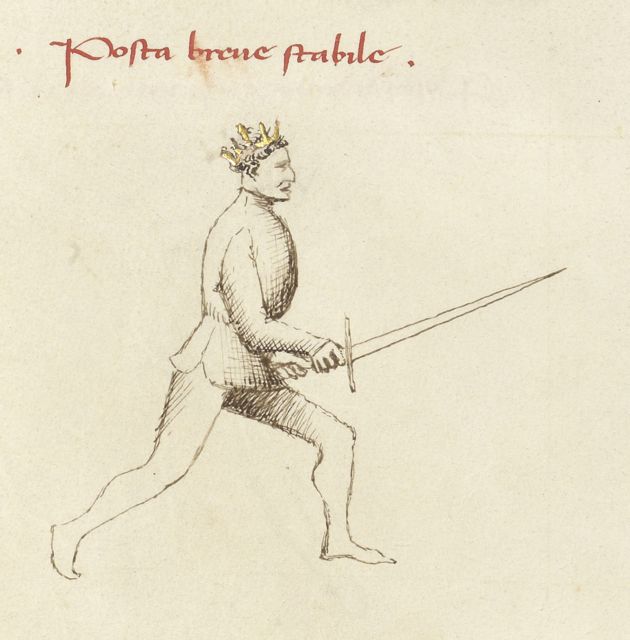 . Posta breue stabile .